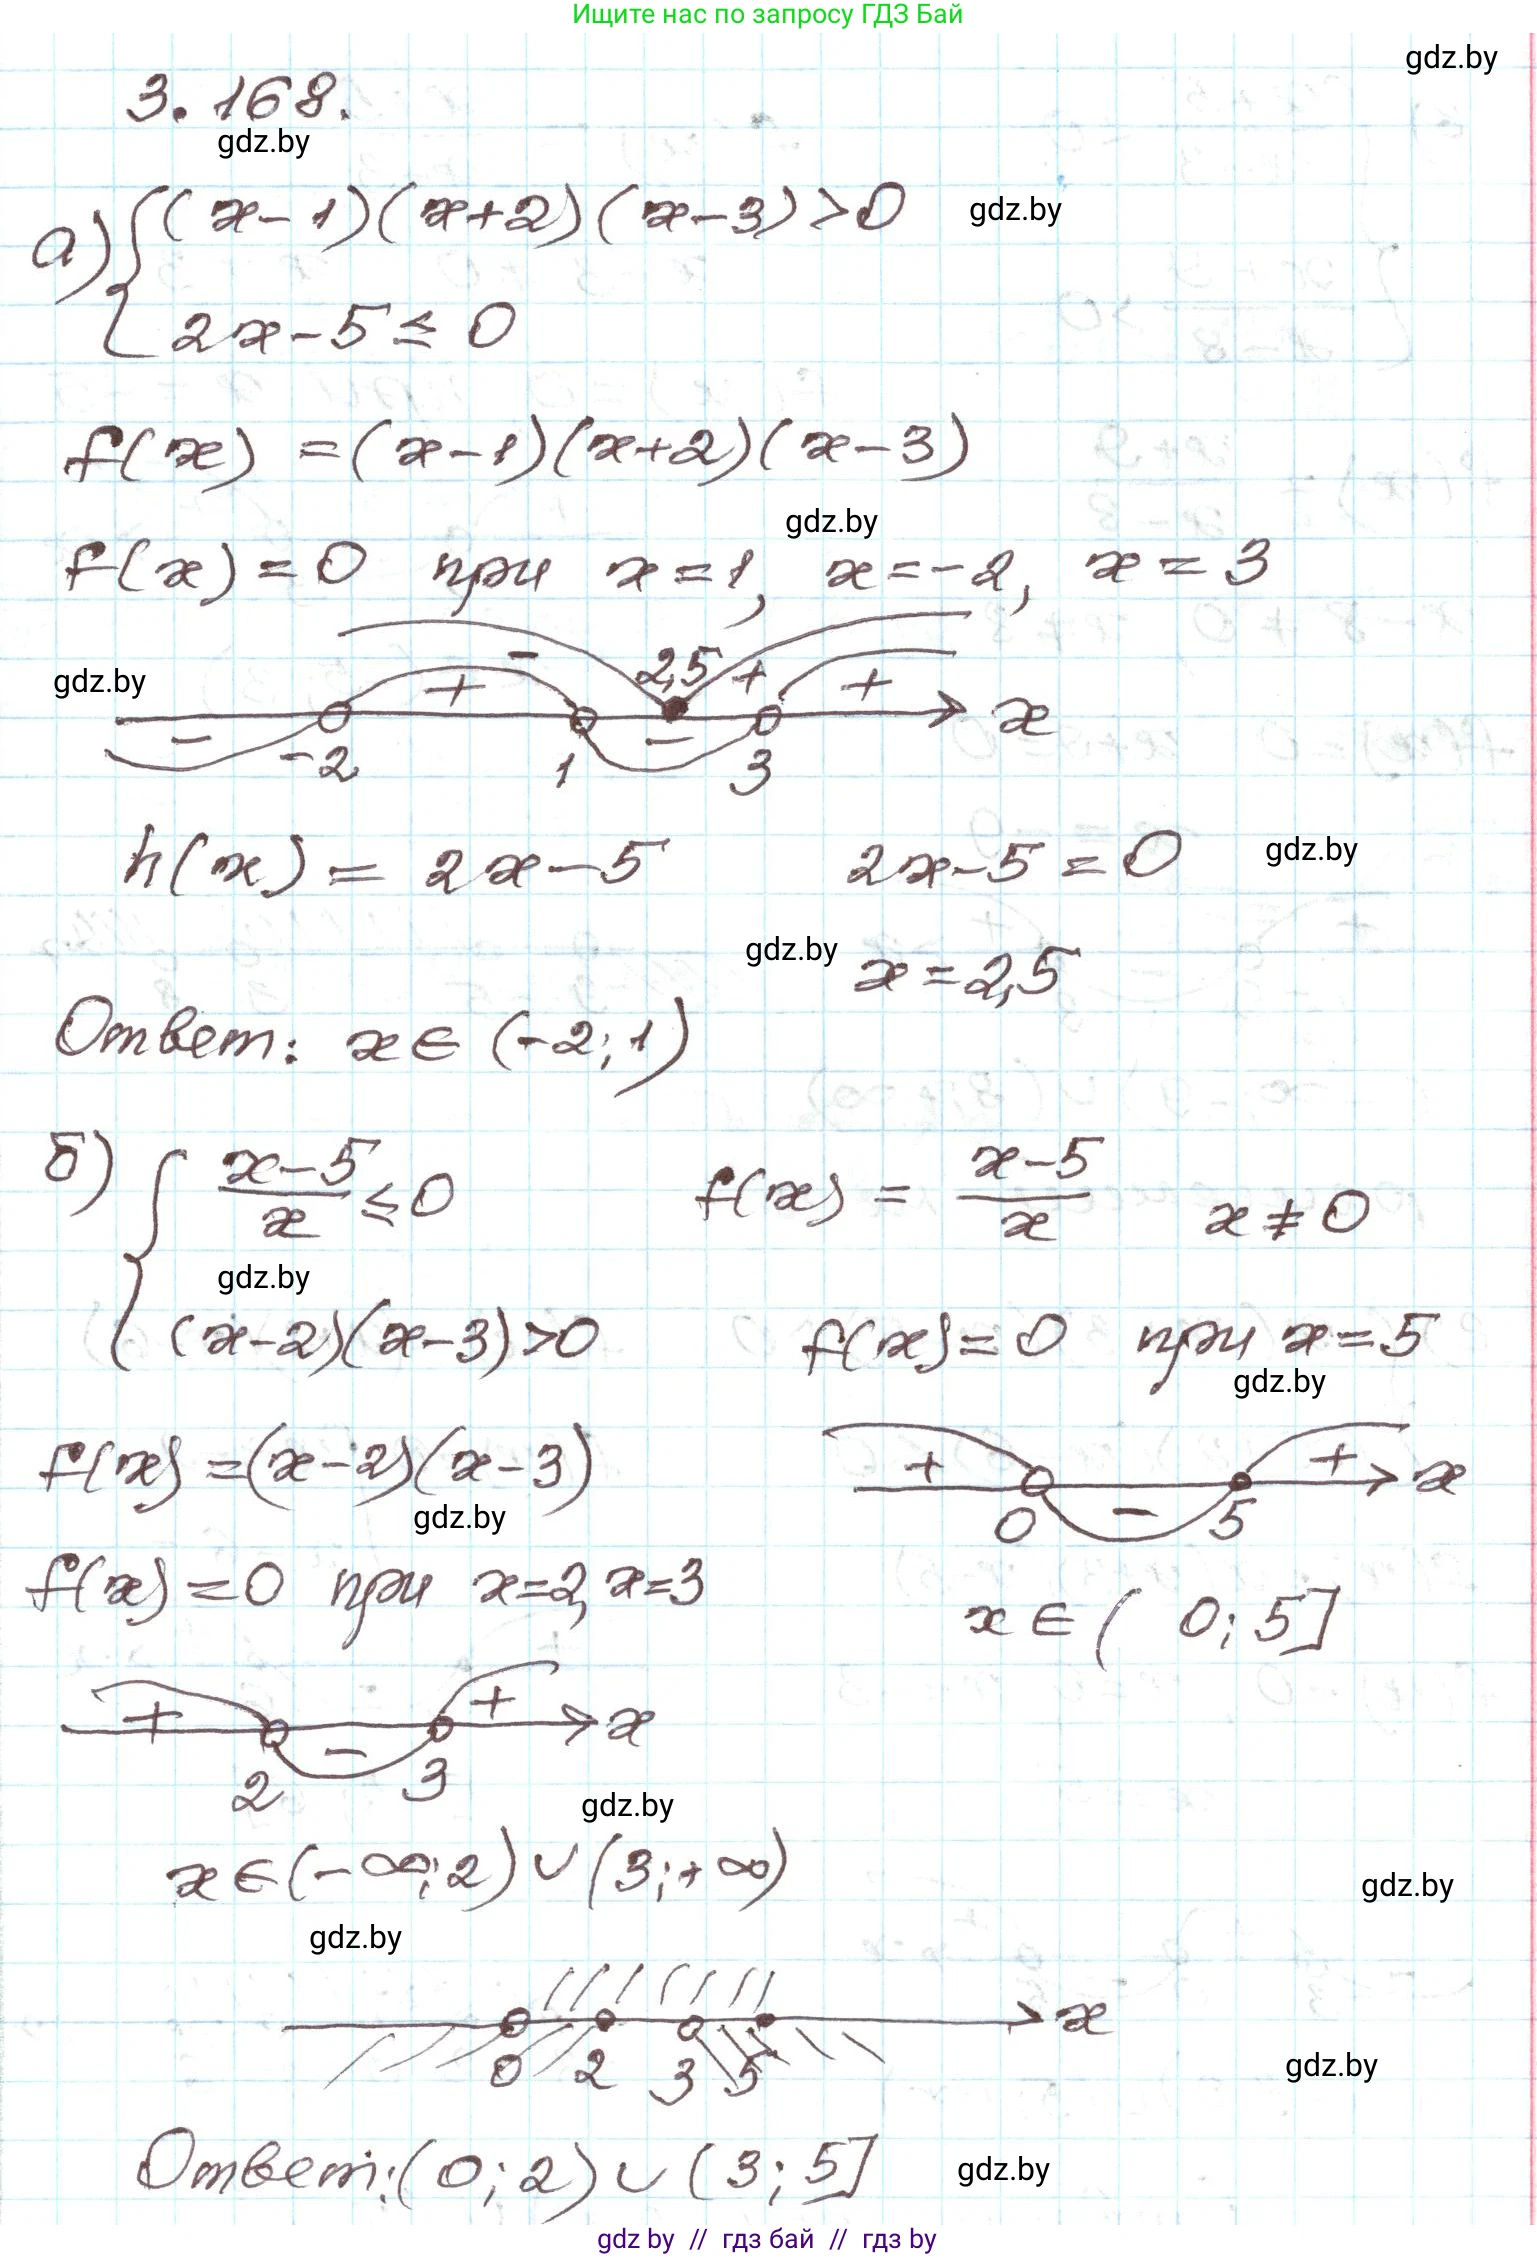 Ищите нас по запросу ГДЗ Бай
gdz.by
3.168.
gdz.by
а) { (x-1)(x+2)(x-3)>0
gdz.by
2x-5≤0
f(x) =(x-1)(x+2)(x-3)
gdz.by
f(x)=0 при x=1, x=-2, x=3
gdz.by
- + - 2,5 + + x
- -2 1 3
h(x)= 2x-5 2x-5=0
gdz.by
gdz.by
x=2,5
Ответ: x∈ (-2; 1)
б) { (x-5)/x ≤0 f(x) = (x-5)/x x≠0
gdz.by
(x-2)(x-3)>0 f(x)=0 при x=5
gdz.by
f(x)=(x-2)(x-3)
+ - + x
0 5
gdz.by
f(x)=0 при x=2, x=3
x∈( 0; 5]
+ - + x
2 3
gdz.by
x∈(-∞;2)∪(3;+∞)
gdz.by
gdz.by
x
0 2 3 5
gdz.by
Ответ:(0;2)∪(3;5]
gdz.by
gdz by // гдз бай // гдз by